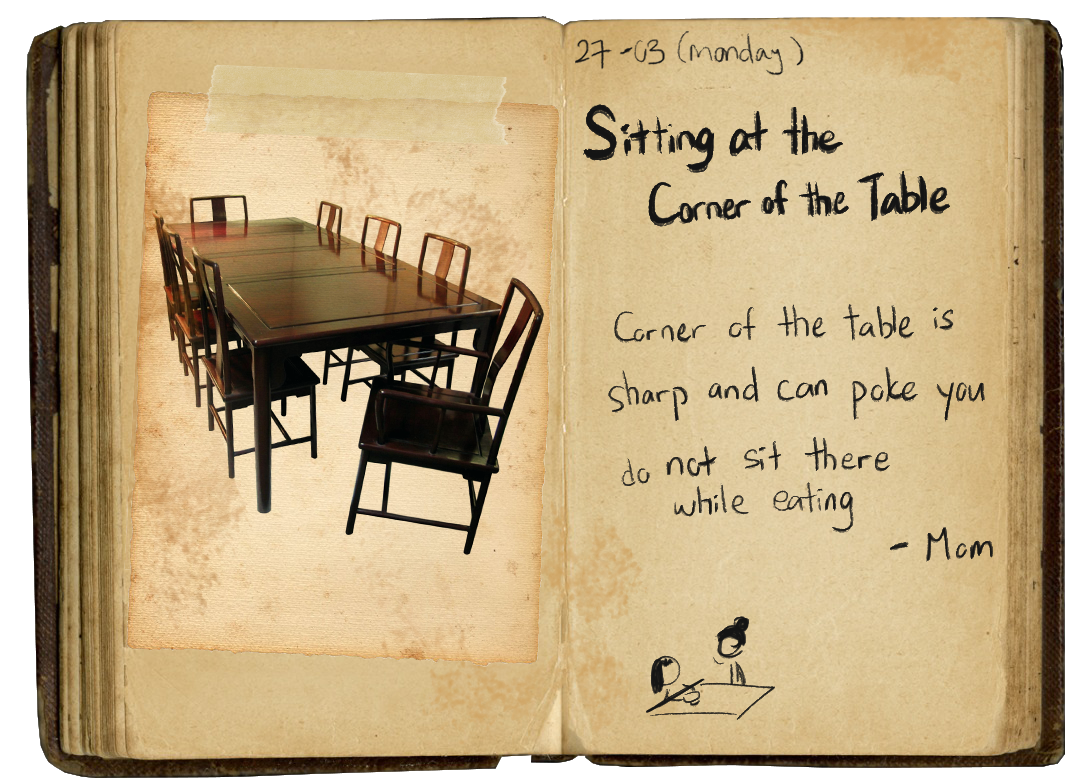 27-03 (monday)
Sitting at the
Corner of the Table
Corner of the table is
sharp and can poke you
do not sit there
while eating
- Mom